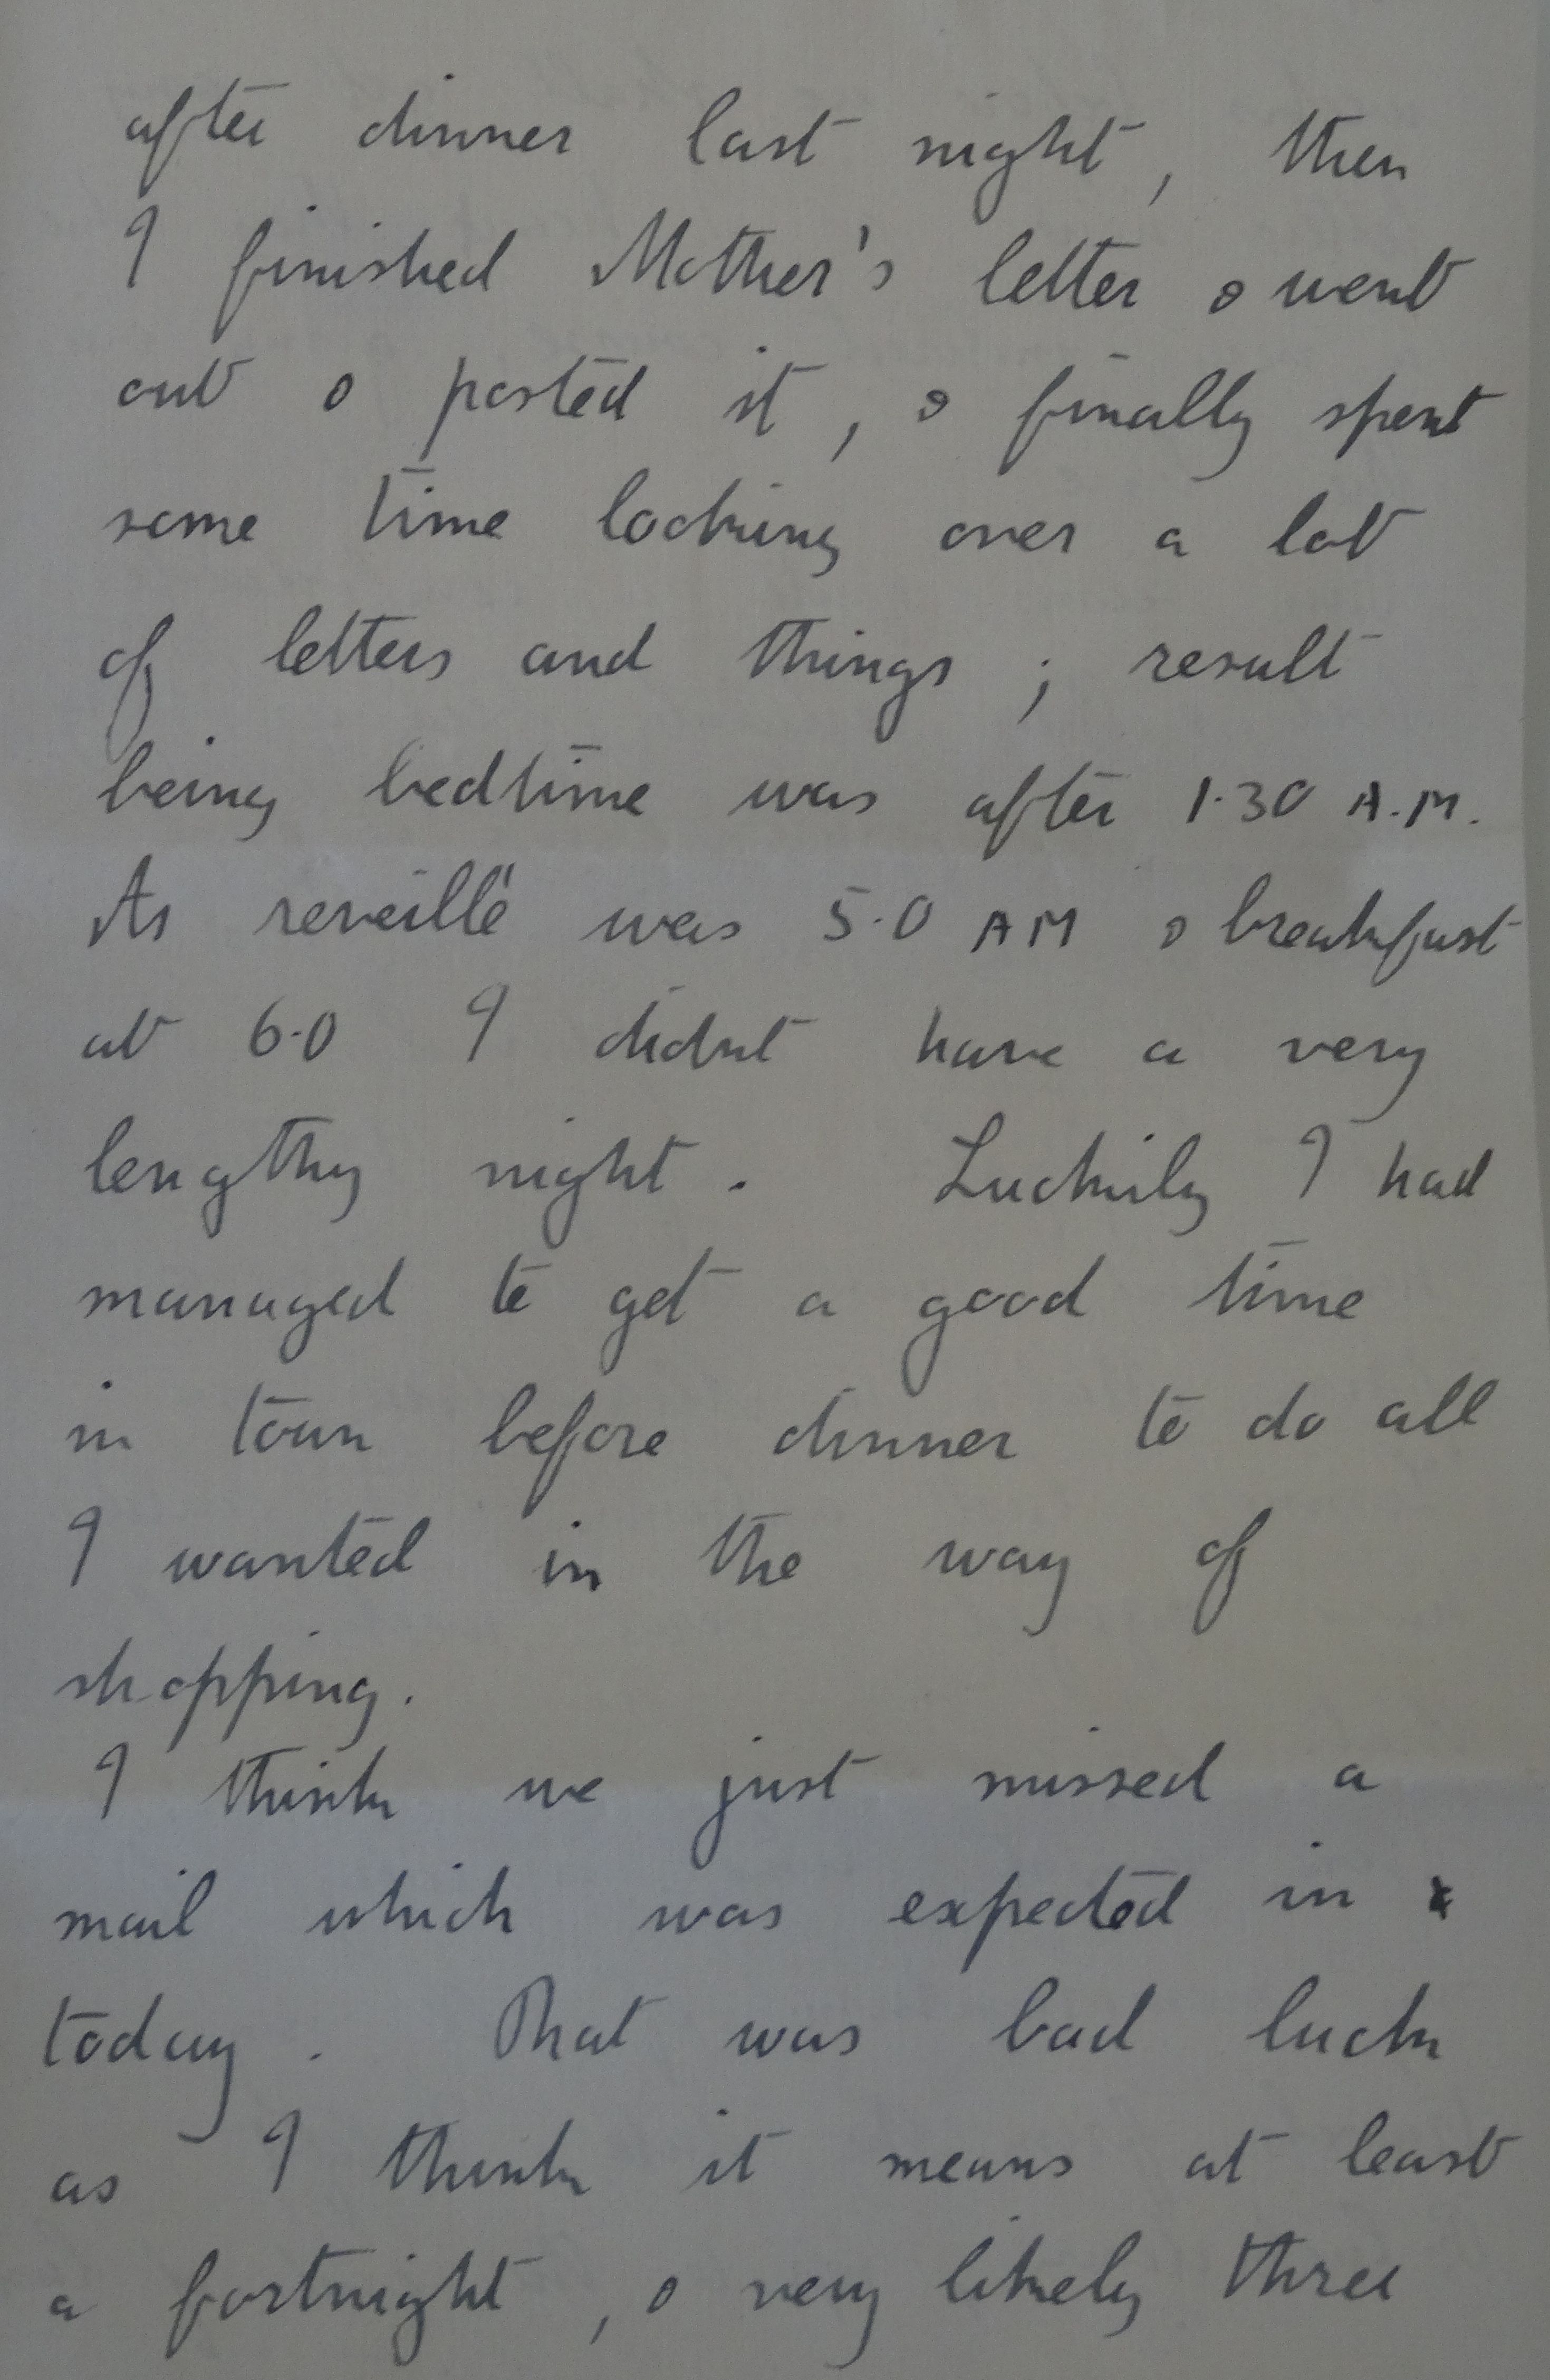 after dinner last night, then
I finished Mother's letter & went
out & posted it, & finally spent
some time looking over a lot
of letters and things; result
being bedtime was after 1.30 A.M.
As reveillé was 5.0 AM & breakfast
at 6.0 I didnt have a very
lengthy night. Luckily I had
managed to get a good time
in town before dinner to do all
I wanted in the way of
shopping.
I think we just missed a
mail which was expected in
today. That was bad luck
as I think it means at least
a fortnight, & very likely three